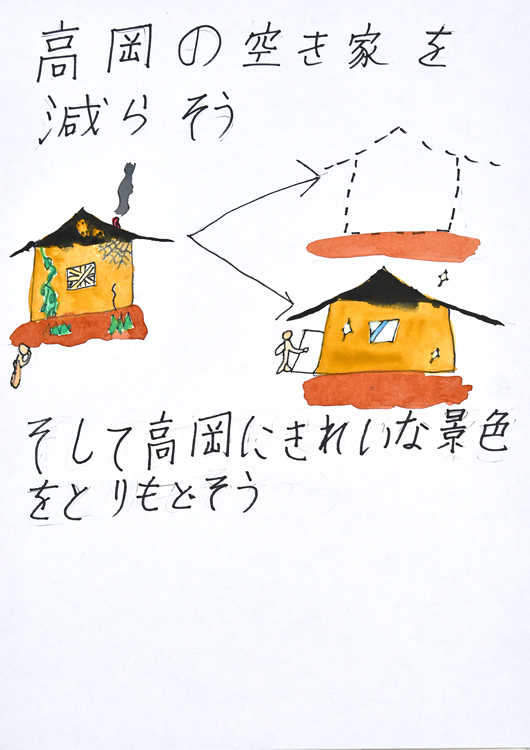 高岡の空き家を
減らそう
そして高岡にきれいな景色
をとりもどそう